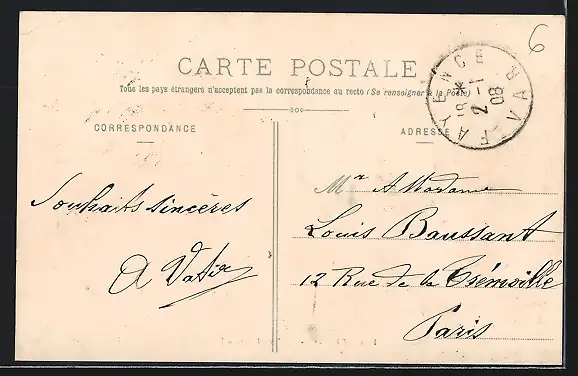 6
CARTE POSTALE
Tous les pays étrangers n'acceptent pas la correspondance au recto (Se renseigner à la Poste)
FAYENCE VAR
2 -1
08
CORRESPONDANCE
ADRESSE
Souhaits sincères
Mr & Madame
Louis Baussant
12 Rue de la Trémoille
Paris